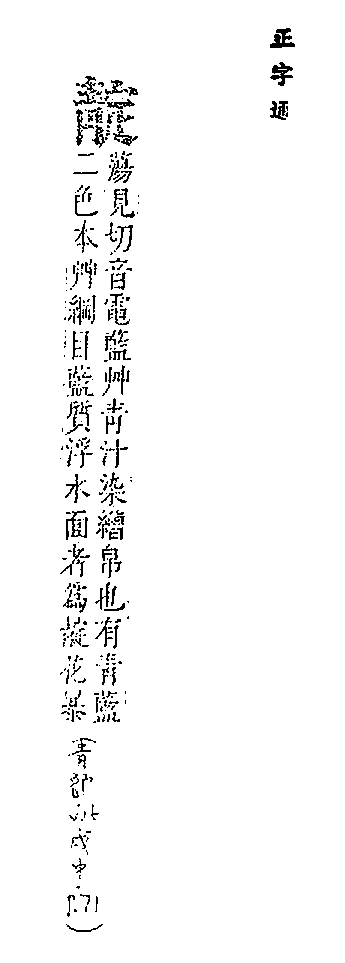 正字通
靛
蕩見切音電藍艸青汁染繒帛也有青藍
二色本艸綱目藍質浮水面者為靛花暴
(青部 戌中 P.71)